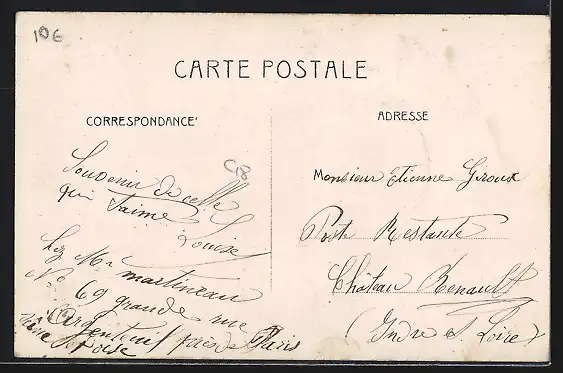 10€
CARTE POSTALE
CORRESPONDANCE
ADRESSE
C18
Souvenir de celle
qui t'aime
Louise
Chez Mr Martineau
No 69 grande rue
Argenteuil près de Paris
Seine et Oise
Monsieur Etienne Giroux
Poste Restante
Château Renault
(Indre et Loire)